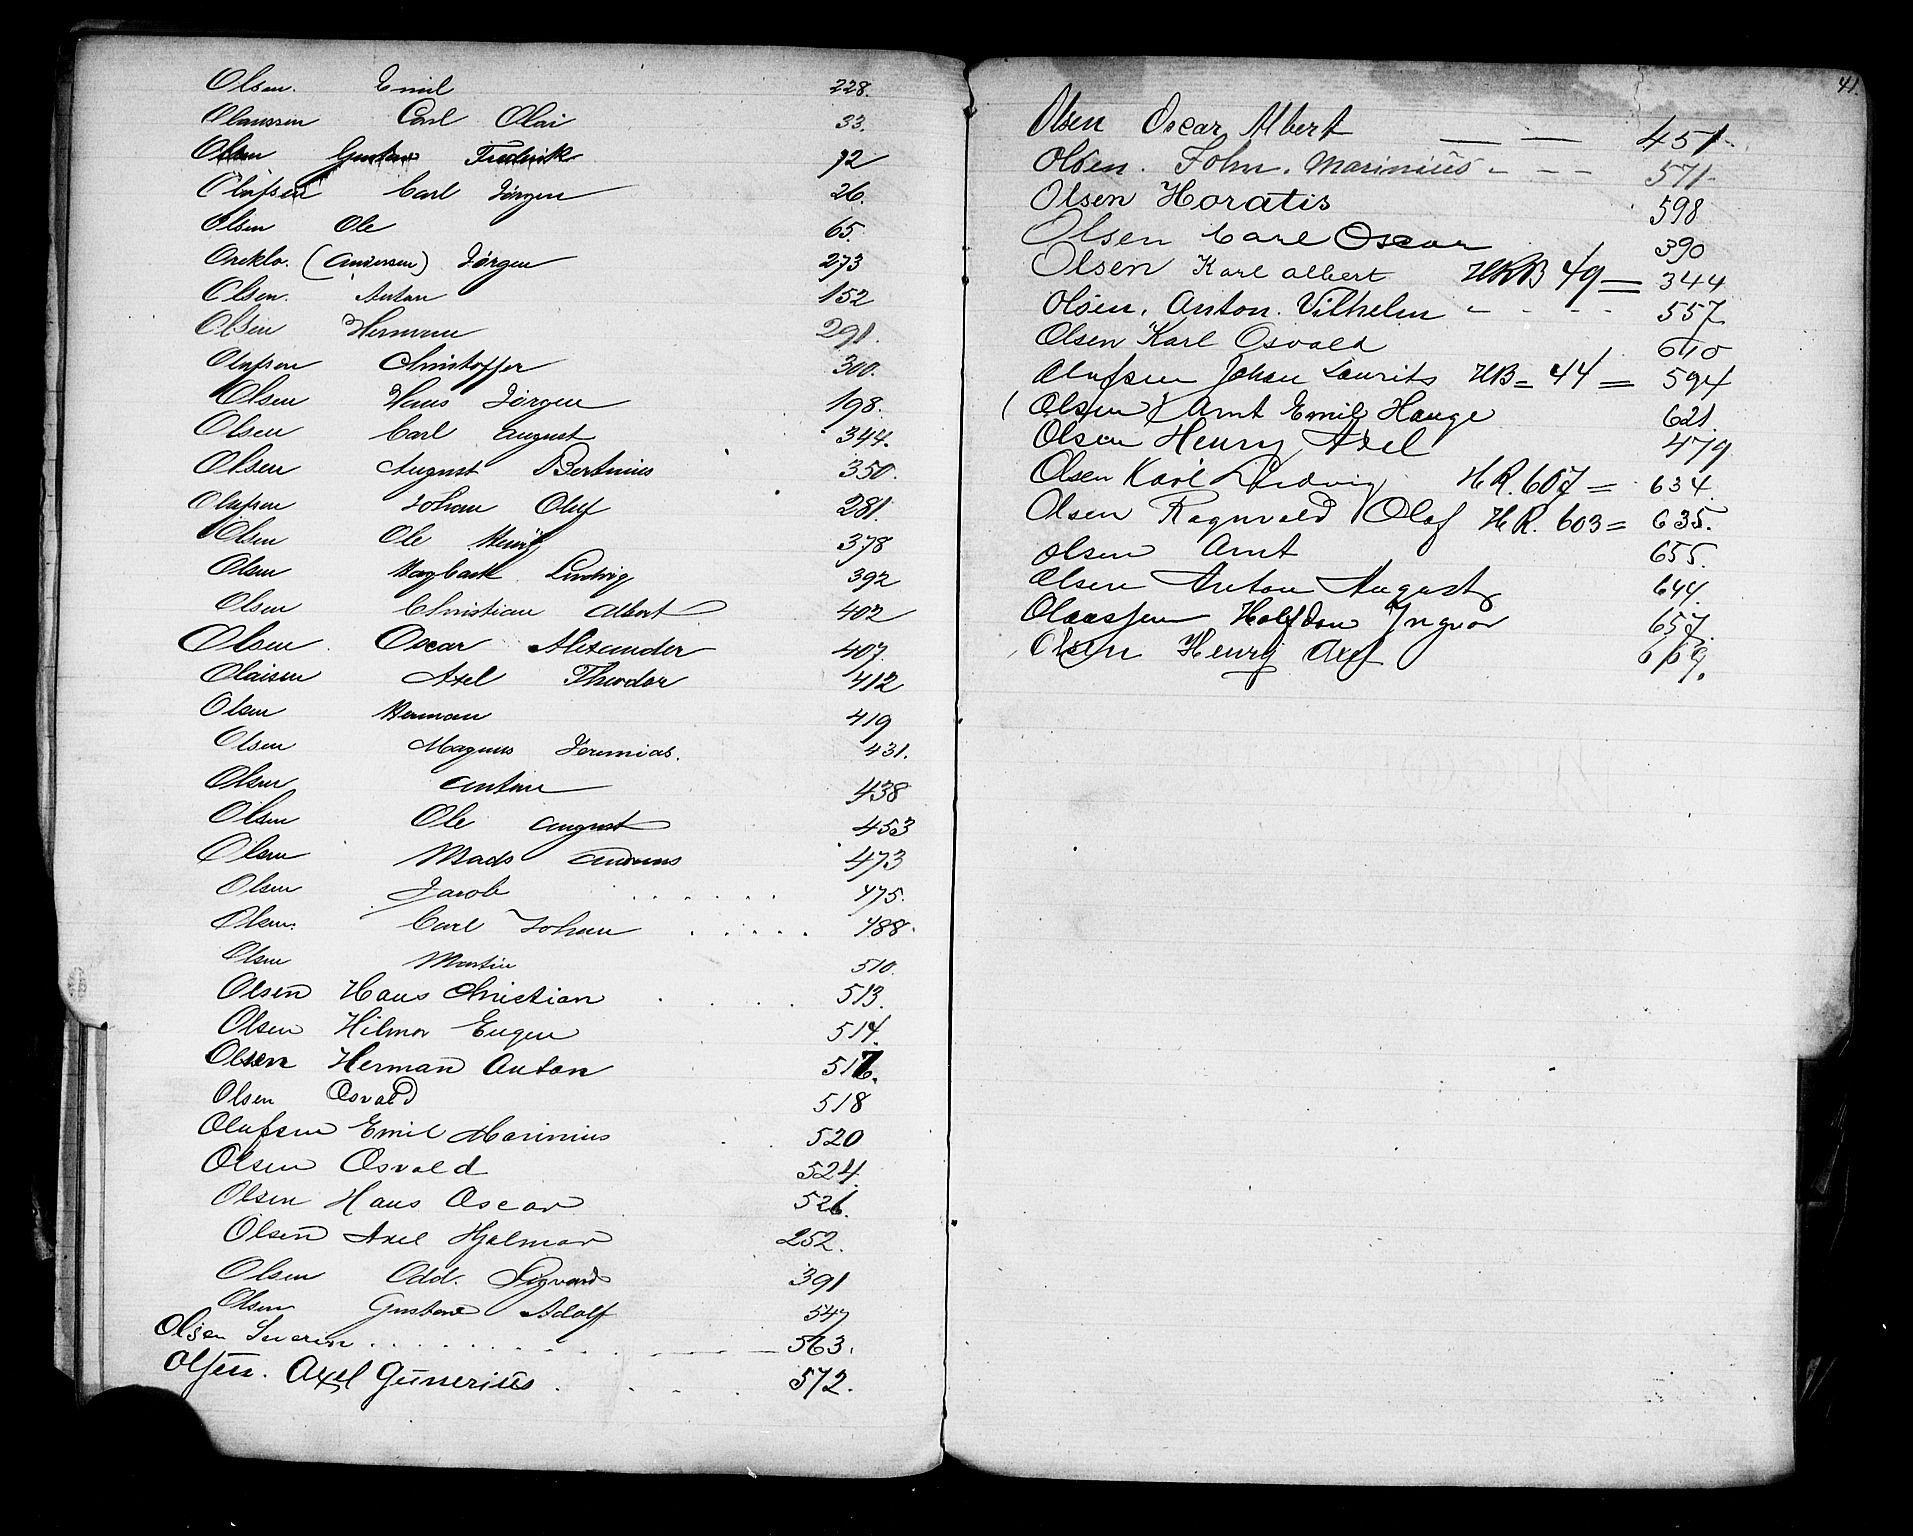 Olsen. Emil 228.
Olaussen Carl Olai 33.
Olsen Gustav Fredrik 92
Olafsen Carl Jörgen 26.
Olsen Ole 65.
(Andersen) Jörgen 273
Olsen. Anton 152
Olsen Herman 291.
Olufsen Christoffer 300.
Olsen Hans Jörgen 198.
Olsen Carl August 344.
Olsen August Bertinius 350.
Olufsen Johan Oluf 281.
Olsen Ole 378
Olsen Ludvig 392
Olsen Christian Albert 402
Olsen. Oscar Alexander 407.
Olaisen Axel Theodor 412
Olsen Herman 419
Olsen Magnus Jeremias. 431.
Olsen Anton 438
Olsen Ole August 453
Olsen Mads Andreas 473
Olsen Jacob . . . . . . 475.
Olsen. Carl Johan . . . . . 488.
Olsen Martin 510.
Olsen Hans Christian . . . . 513.
Olsen Hilmar Eugen 514.
Olsen Herman Anton 517.
Olsen Osvald 518
Olufsen Emil Marinius 520
Olsen Osvald 524.
Olsen Hans Oscar 526.
Olsen Axel Hjalmar 252.
Olsen Odd. Sigvard 391
Olsen Gustav Adolf 547
Olsen Severin . . . . . . . 563.
Olsen. Axel Gunerius . . . . 572.
41.
Olsen Oscar Albert — — 451.
Olsen. John. Marinius - - - 571.
Olsen Horatis 598
Olsen Carl Oscar 390
Olsen Karl Albert HRB 49 = 344
Olsen. Anton. Vilhelm - - - - 557
Olsen Karl Osvald 640
Olufsen Johan Laurits HB = 44 = 594
( Olsen Arnt Emil Hauge 621.
Olsen Henry Axel 479
Olsen Karl Ludvig HR. 607 = 634.
Olsen Ragnvald Olaf HR. 603 = 635.
Olsen Arnt 655.
Olsen Anton August 644.
Olaassen Halfdan Ingvar 657.
Olsen Henry Axel 669.